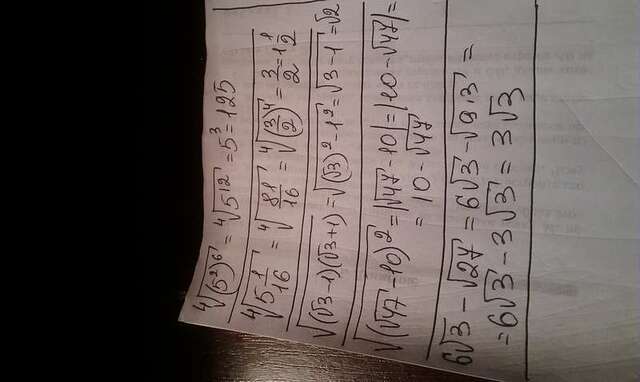 ⁴√(5²)⁶ = ⁴√5¹² = 5³ = 125
⁴√5 1/16 = ⁴√81/16 = ⁴√(3/2)⁴ = 3/2 = 1 1/2
√(√3-1)(√3+1) = √(√3)²-1² = √3-1 = √2
√(√47-10)² = |√47-10| = |10-√47| =
= 10-√47
6√3-√27 = 6√3-√9·3 =
= 6√3-3√3 = 3√3